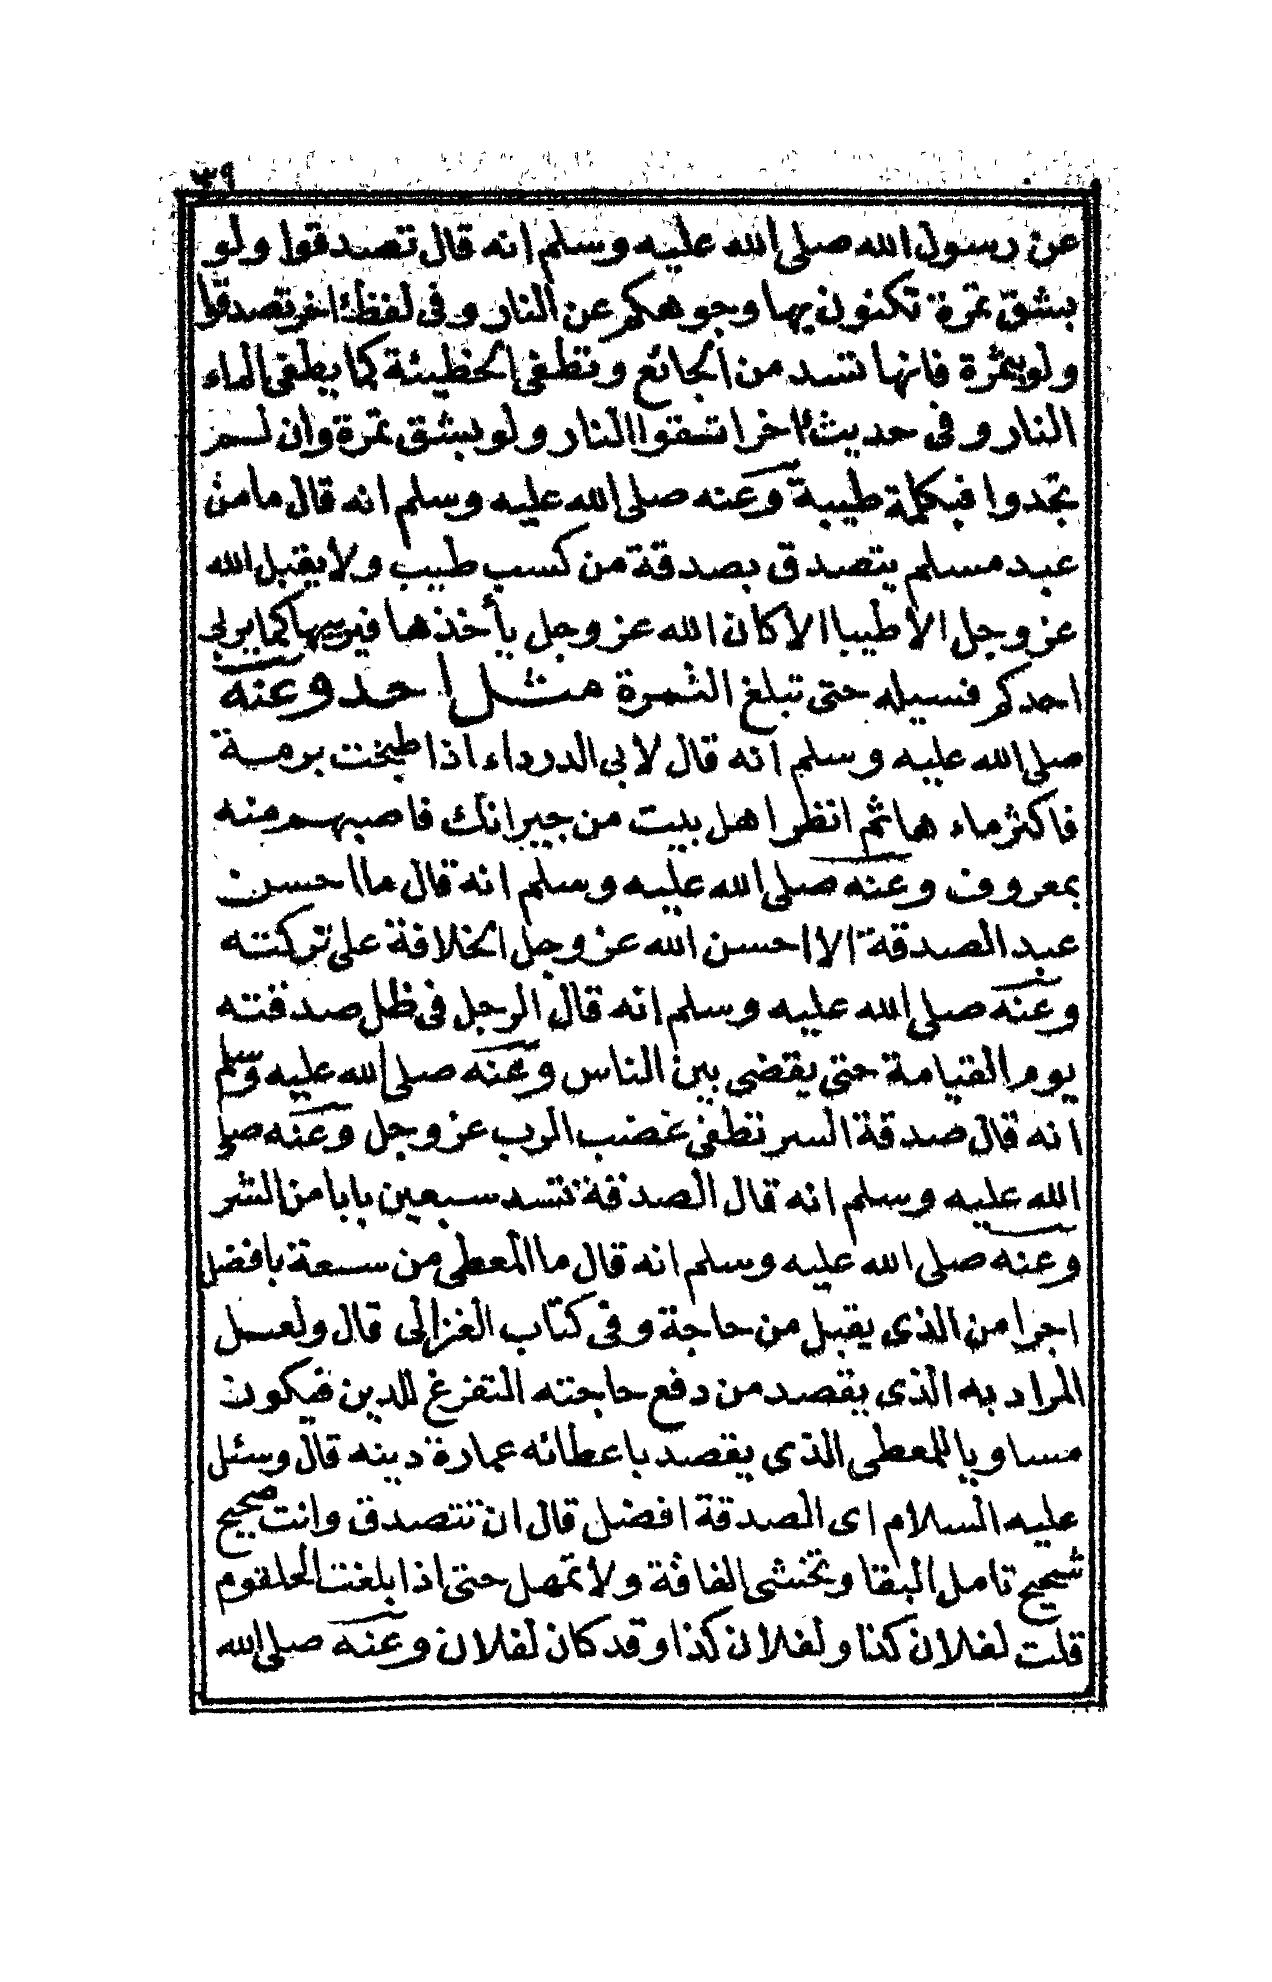 ٣٩
عن رسول الله صلى الله عليه وسلم انه قال تصدقوا ولو
بشق تمرة تكنون بها وجوهكم عن النار وفى لفظ اخر تصدقوا
ولو بتمرة فانها تسد من الجائع وتطفى الخطيئة كما يطفى الماء
النار وفى حديث اخر اتقوا النار ولو بشق تمرة وان لم
تجدوا فبكلمة طيبة وعنه صلى الله عليه وسلم انه قال ما من
عبد مسلم يتصدق بصدقة من كسب طيب ولا يقبل الله
عز وجل الا طيبا الا كان الله عز وجل يأخذها فيربيها كما يربى
احدكم فسيله حتى تبلغ الثمرة مثل احد وعنه
صلى الله عليه وسلم انه قال لابى الدرداء اذا طبخت برمة
فاكثر ماء هاثم انظر اهل بيت من جيرانك فاصبهم منه
بمعروف وعنه صلى الله عليه وسلم انه قال ما احسن
عبد الصدقة الا احسن الله عز وجل الخلافة على تركته
وعنه صلى الله عليه وسلم انه قال الرجل فى ظل صدقته
يوم القيامة حتى يقضى بين الناس وعنه صلى الله عليه وسلم
انه قال صدقة السر تطفى غضب الرب عز وجل وعنه صلى
الله عليه وسلم انه قال الصدقة تسد سبعين بابا من الشر
وعنه صلى الله عليه وسلم انه قال ما المعطى من سعة بافضل
اجرا من الذى يقبل من حاجة وفى كتاب الغزالى قال ولعل
المراد به الذى يقصد من دفع حاجته التفرغ للدين فيكون
مساويا للمعطى الذى يقصد باعطائه عمارة دينه قال وسئل
عليه السلام اى الصدقة افضل قال ان تتصدق وانت صحيح
شحيح تامل البقا وتخشى الفاقة ولا تمهل حتى اذا بلغت الحلقوم
قلت لفلان كذا ولفلان كذا وقد كان لفلان وعنه صلى الله